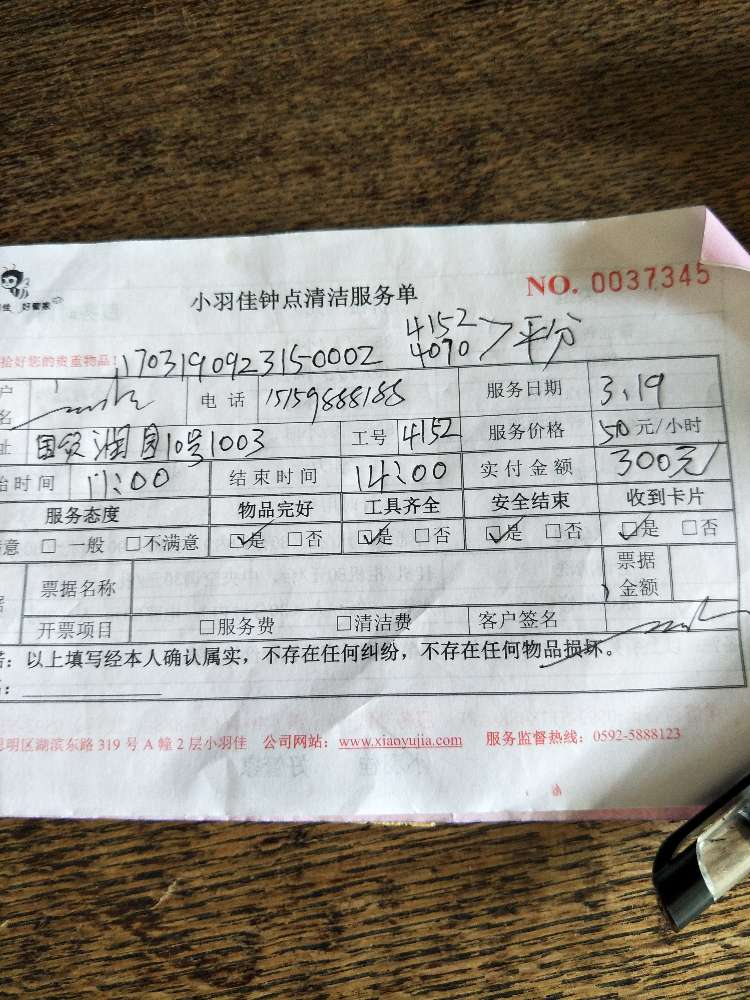 好管家
小羽佳钟点清洁服务单 NO. 0037345
拾好您的贵重物品! 1703190923150002 4152 4070 > 平分
户名 电话 15159888188 服务日期 3.19
址 国贸润园10号1003 工号 4152 服务价格 50元/小时
始时间 11:00 结束时间 14:00 实付金额 300元
服务态度 物品完好 工具齐全 安全结束 收到卡片
满意 □ 一般 □不满意 ☑是 □否 ☑是 □否 ☑是 □否 ☑是 □否
票据名称 票据金额
开票项目 □服务费 □清洁费 客户签名
诺：以上填写经本人确认属实，不存在任何纠纷，不存在任何物品损坏。
思明区湖滨东路 319 号 A 幢 2 层小羽佳 公司网站：www.xiaoyujia.com 服务监督热线：0592-5888123